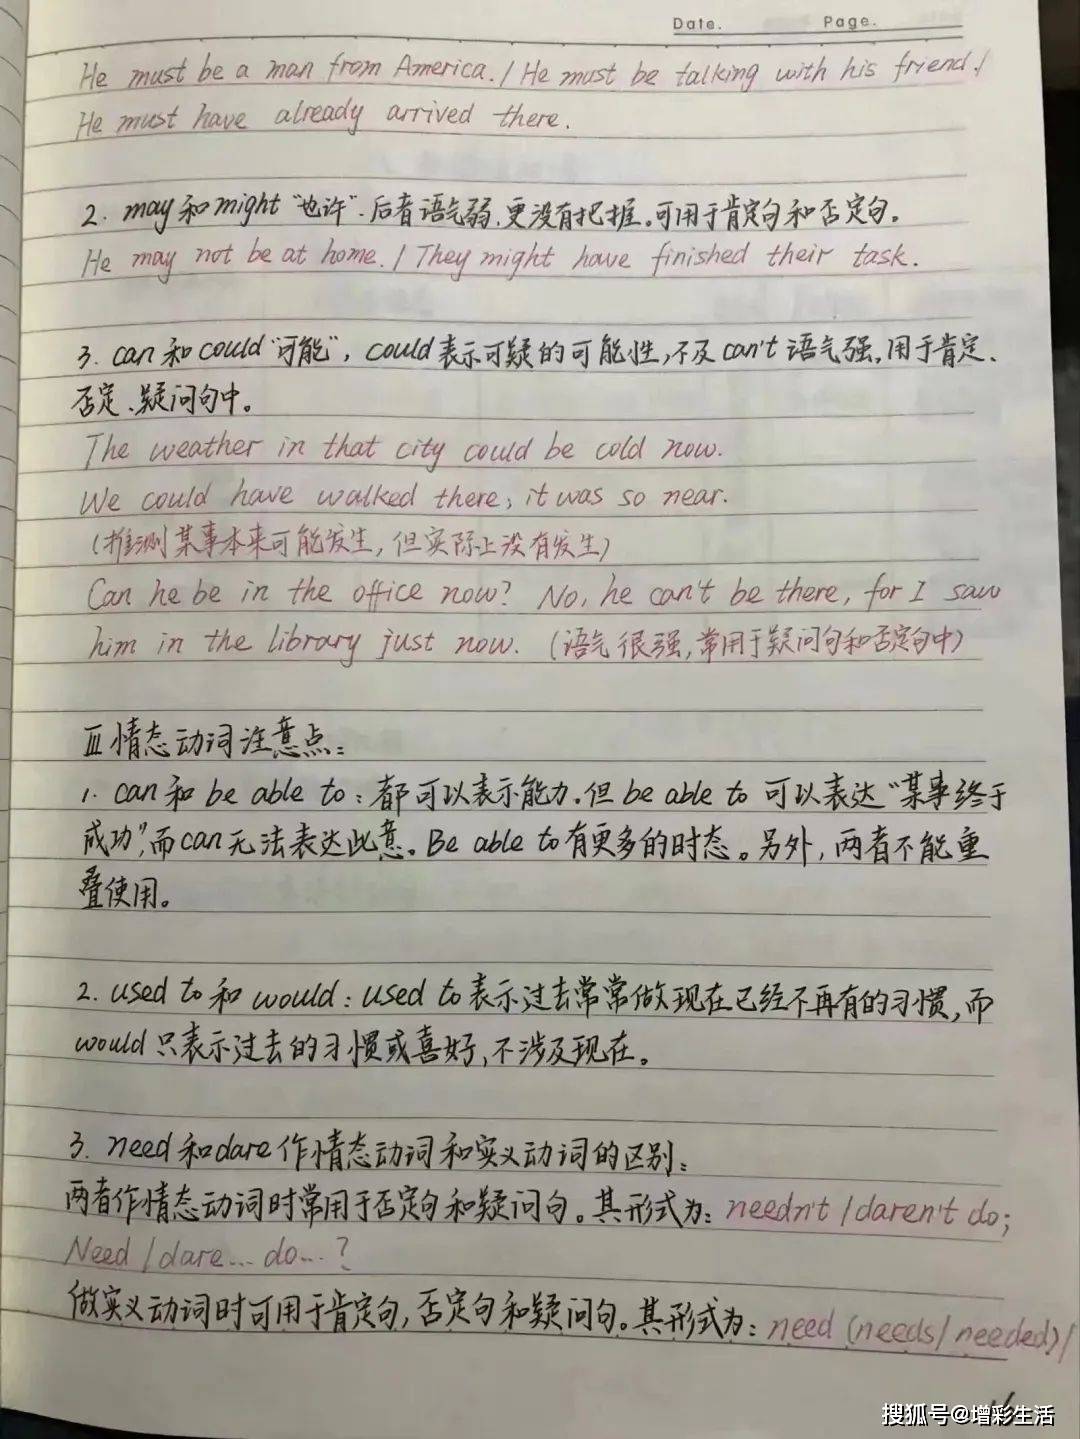 Date. Page.
He must be a man from America. / He must be talking with his friend. /
He must have already arrived there.
2. may和might "也许". 后者语气弱, 更没有把握。可用于肯定句和否定句。
He may not be at home. / They might have finished their task.
3. can和could "可能", could表示可疑的可能性, 不及can't语气强, 用于肯定、
否定、疑问句中。
The weather in that city could be cold now.
We could have walked there; it was so near.
(推测某事本来可能发生, 但实际上没有发生)
Can he be in the office now? No, he can't be there, for I saw
him in the library just now. (语气很强, 常用于疑问句和否定句中)
Ⅲ 情态动词注意点:
1. can和 be able to: 都可以表示能力. 但be able to 可以表达"某事终于
成功", 而can无法表达此意。Be able to有更多的时态。另外, 两者不能重
叠使用。
2. used to和would: used to表示过去常常做现在已经不再有的习惯, 而
would只表示过去的习惯或喜好, 不涉及现在。
3. need和dare作情态动词和实义动词的区别:
两者作情态动词时常用于否定句和疑问句。其形式为: needn't / daren't do;
Need / dare... do...?
做实义动词时可用于肯定句, 否定句和疑问句。其形式为: need (needs / needed) /
搜狐号@增彩生活